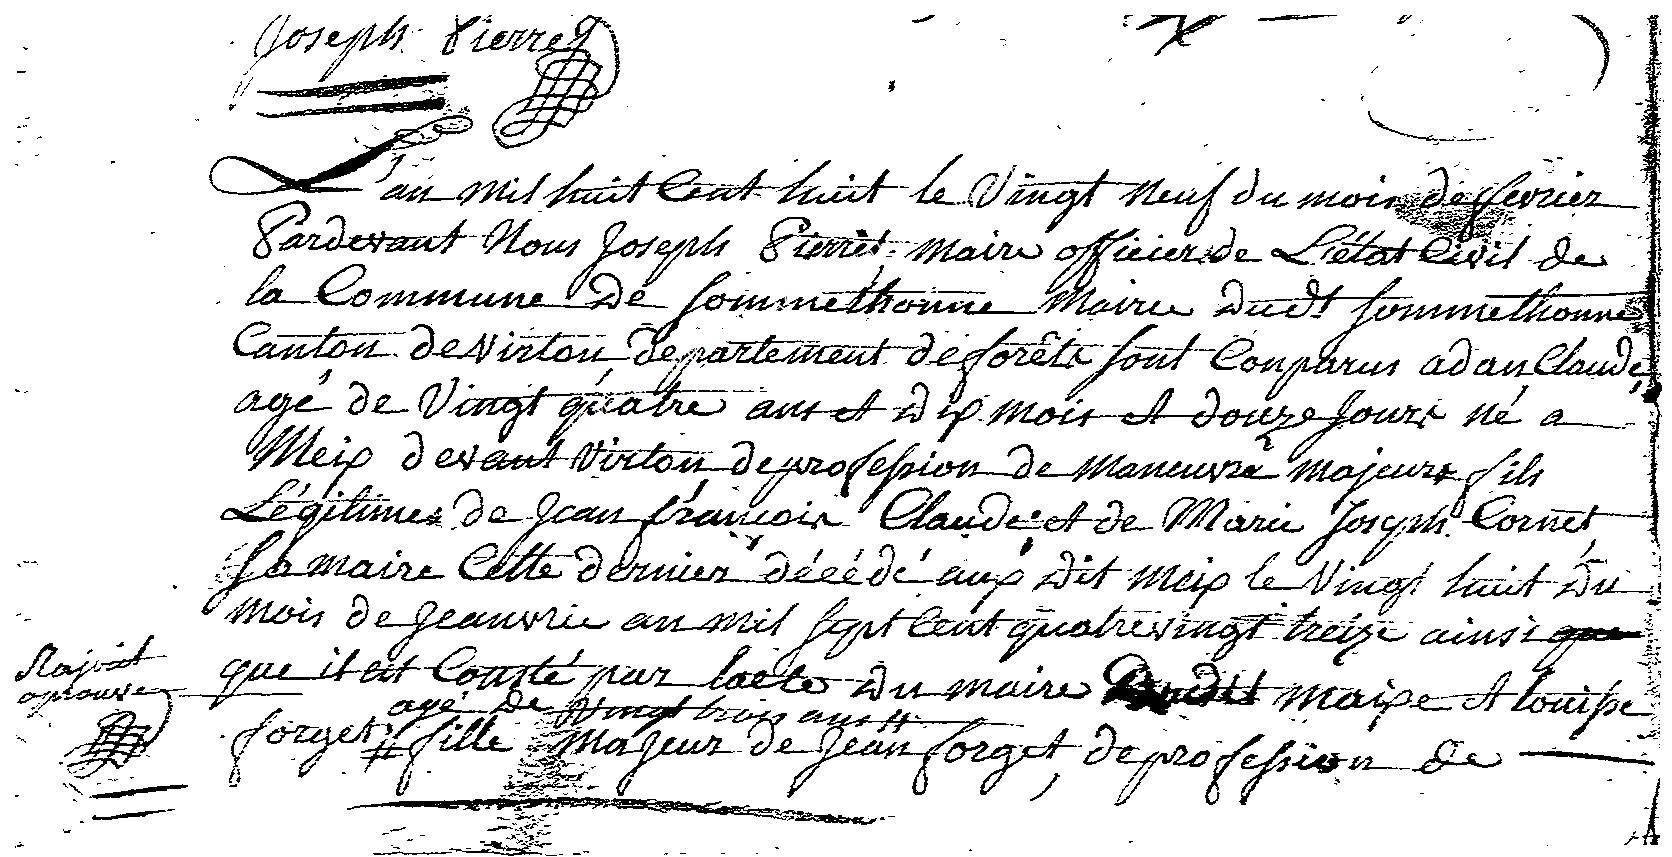 Joseph Pierret
L'an mil huit Cent huit le Vingt Neuf du mois de fevrier
Pardevant Nous Joseph Pierret maire officier de L'état Civil de
la Commune De Sommethonne Mairie Dudt Sommethonne
Canton de Virton, département de forêts sont Conparus adan Claude,
agé de Vingt quatre ans et Dix mois et douze Jours né a
Meix devant Virton, de profession de maneuvre majeurs fils
Légitimes de Jean françois Claude et de Marie Joseph Cornet
Sa maire Cette dernier décédé aux Dit Meix le Vingt huit Du
mois de Jeanvrie an mil sept Cent quatrevingt treize ainsi que
que it est Consté par lacte Du maire Dudit Maixe et Louisse
agé De Vingt trois ans #
forget # fille Majeur de Jean forget, de profession de
Rajout
aprouve